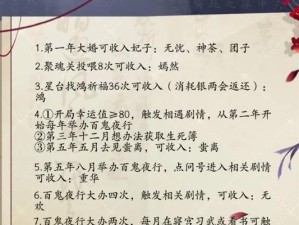 1.第一年大婚可收入妃子：无忧、神荼、团子
2.聚魂关投喂8次可收入：嫣然
3.星台找鸿祈福36次可收入（消耗银两会返还）：
鸿
4.①开局幸运值≥80，触发相遇剧情，从第二年开
始每年举办百鬼夜行
②第三年十二月想办法获取生死薄
③第五年五月去见蚩离，可收入：蚩离
5.第五年八月举办百鬼夜行，点问号进入相关剧情
可收入：重华
6.百鬼夜行大办四次，触发相关剧情，可收入：无
欢
7.百鬼夜行大办两次，每月在寝宫习武或看书可触